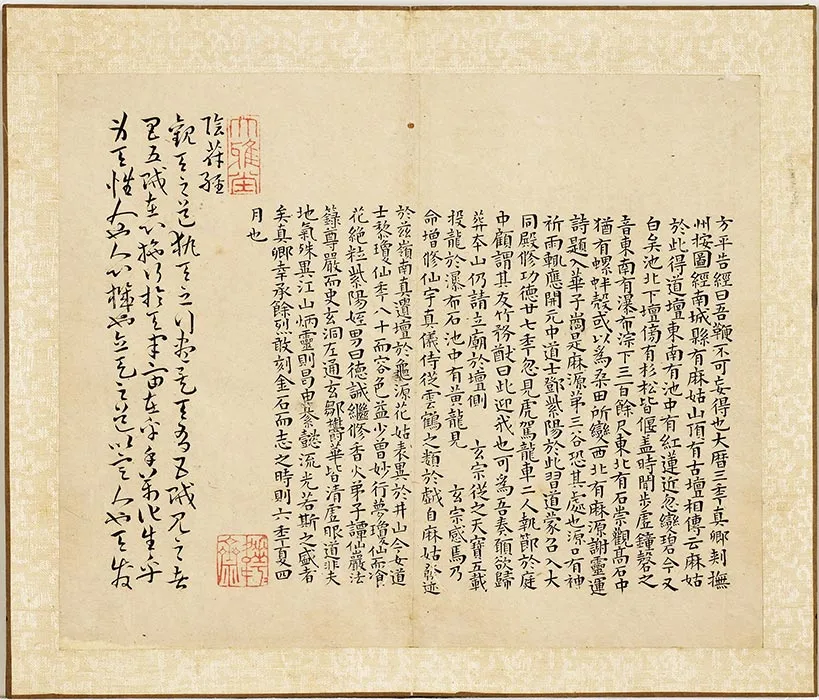 方平告經曰吾鞭不可妄得也大曆三秊真卿刾撫
州按圖經南城縣有麻姑山頂有古壇相傳云麻姑
於此得道壇東南有池中有紅蓮近忽變碧今又
白矣池北下壇傍有杉松皆偃蓋時聞步虛鐘磬之
音東南有瀑布淙下三百餘尺東北有石崇觀高石中
猶有螺蚌殼或以為桑田所變西北有麻源謝靈運
詩題入華子崗是麻源第三谷恐其處也源口有神
祈雨輒應開元中道士鄧紫陽於此習道蒙召入大
同殿修功德廿七秊忽見虎駕龍車二人執節於庭
中顧謂其友竹務猷曰此迎我也可為吾奏願欲歸
葬本山仍請立廟於壇側 玄宗從之天寶五載
投龍於瀑布石池中有黃龍見 玄宗感焉乃
命增修仙宇真儀侍從雲鶴之類於戲自麻姑發迹
於茲嶺南真遺壇於龜源花姑表異於井山今女道
士黎瓊仙秊八十而容色益少曾妙行夢瓊仙而飡
花絕粒紫陽姪男曰德誠繼修香火弟子譚仙巖法
籙尊嚴而史玄洞左通玄鄒鬱華皆清虛服道非夫
地氣殊異江山炳靈則曷由纂懿流光若斯之盛者
矣真卿幸承餘烈敢刻金石而志之時則六秊夏四
月也
大雅堂
攖寧齋
陰苻經
觀天之道執天之行盡矣天有五賊見之者
昌五賊在心施行於天宇宙在乎手萬化生乎
身天性人也人心機也立天之道以定人也天發